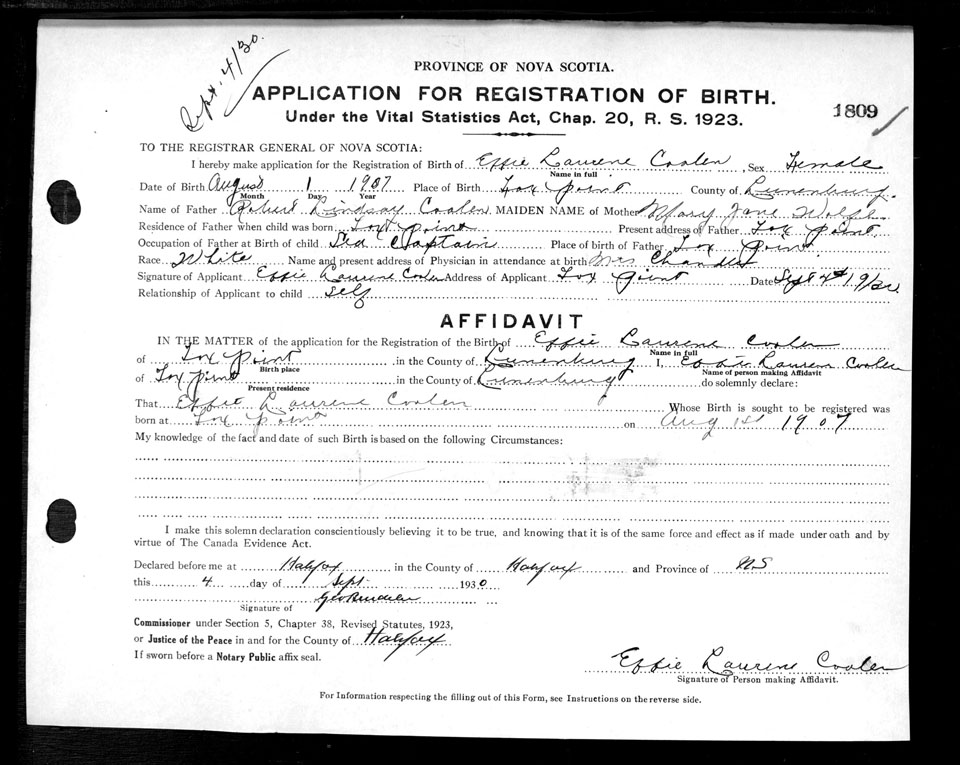 Sept. 4/30.
PROVINCE OF NOVA SCOTIA.
APPLICATION FOR REGISTRATION OF BIRTH.
1809
Under the Vital Statistics Act, Chap. 20, R. S. 1923.
TO THE REGISTRAR GENERAL OF NOVA SCOTIA:
I hereby make application for the Registration of Birth of Effie Laurene Coolen, Sex Female
Name in full
Date of Birth August 1 1907 Place of Birth Fox Point County of Lunenburg.
Month Day Year
Name of Father Robert Lindsay Coolen MAIDEN NAME of Mother Mary Jane
Residence of Father when child was born Fox Point Present address of Father Fox Point.
Occupation of Father at Birth of child Captain Place of birth of Father Fox Point
Race White Name and present address of Physician in attendance at birth Mrs Chandler
Signature of Applicant Effie Laurene Coolen Address of Applicant Fox Point Date Sept 4th
Relationship of Applicant to child self
AFFIDAVIT
IN THE MATTER of the application for the Registration of the Birth of Effie Laurene Coolen
Name in full
of Fox Point in the County of Lunenburg I, Effie Laurene Coolen
Birth place Name of person making Affidavit
of Fox Point in the County of Lunenburg do solemnly declare:
Present residence
That Effie Laurene Coolen Whose Birth is sought to be registered was
born at Fox Point on Aug 1st 1907
My knowledge of the fact and date of such Birth is based on the following Circumstances:
I make this solemn declaration conscientiously believing it to be true, and knowing that it is of the same force and effect as if made under oath and by
virtue of The Canada Evidence Act.
Declared before me at Halifax in the County of Halifax and Province of NS
this 4 day of Sept 1930
Signature of
Commissioner under Section 5, Chapter 38, Revised Statutes, 1923,
or Justice of the Peace in and for the County of Halifax
If sworn before a Notary Public affix seal.
Effie Laurene Coolen
Signature of Person making Affidavit.
For Information respecting the filling out of this Form, see Instructions on the reverse side.